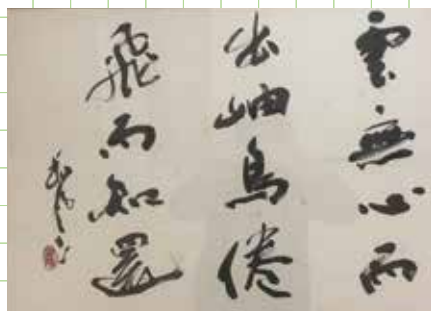 雲無心而
出岫鳥倦
飛而知還